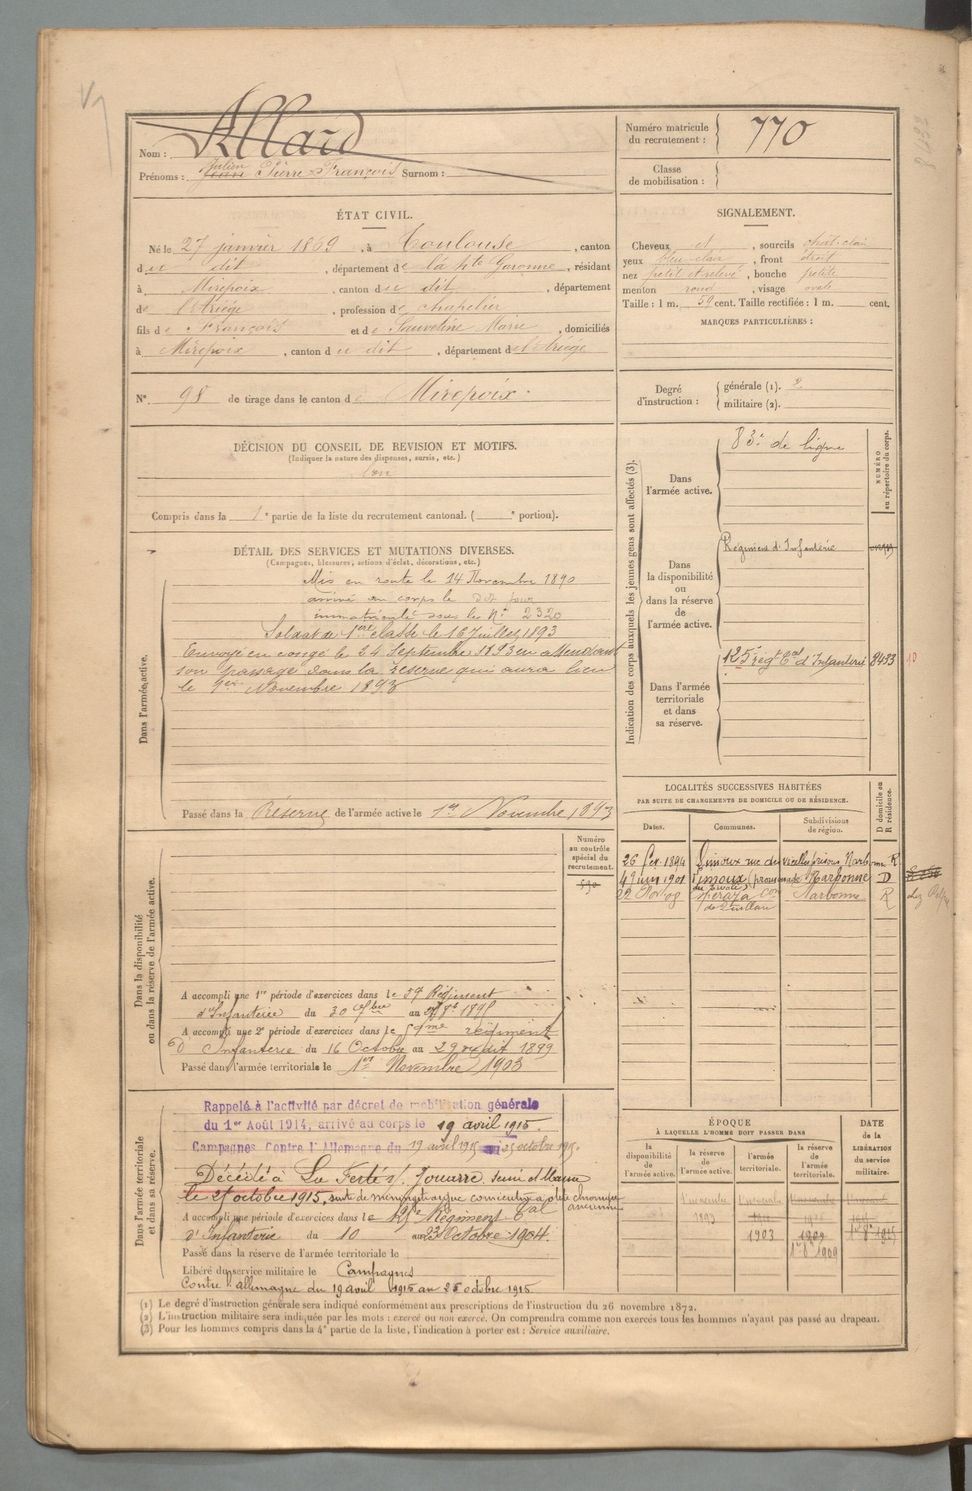 Nom : Allard
Prénoms : Jean Julien Pierre François Surnom :
Numéro matricule du recrutement : 770
Classe de mobilisation :
ÉTAT CIVIL.
Né le 27 janvier 1869, à Toulouse, canton
du dit, département de la Hte Garonne, résidant
à Mirepoix, canton du dit, département
de l'Ariége, profession de chapelier
fils de François et de Sauveline Marie, domiciliés
à Mirepoix, canton du dit, département de l'Ariége
N° 98 de tirage dans le canton de Mirepoix.
SIGNALEMENT.
Cheveux et, sourcils chat-clair
yeux bleu clair, front droit
nez petit et relevé, bouche petite
menton rond, visage ovale
Taille : 1 m. 59 cent. Taille rectifiée : 1 m. cent.
MARQUES PARTICULIÈRES :
Degré d'instruction : générale (1). 2
militaire (2).
DÉCISION DU CONSEIL DE REVISION ET MOTIFS.
(Indiquer la nature des dispenses, sursis, etc.)
Bon
Compris dans la 1e partie de la liste du recrutement cantonal. ( e portion).
DÉTAIL DES SERVICES ET MUTATIONS DIVERSES.
(Campagnes, blessures, actions d'éclat, décorations, etc.)
Dans l'armée active.
Mis en route le 14 Novembre 1890
arrivé au corps le dit jour
immatriculé sous le N° 2320
Soldat de 1ère classe le 16 Juillet 1893
Envoyé en congé le 24 Septembre 1893 en attendant
son passage dans la réserve qui aura lieu
le 1er Novembre 1893
Passé dans la Réserve de l'armée active le 1er Novembre 1893
Indication des corps auxquels les jeunes gens sont affectés (3).
NUMÉRO au répertoire du corps.
Dans l'armée active.
83e de ligne
Dans la disponibilité ou dans la réserve de l'armée active.
Régiment d'Infanterie
Dans l'armée territoriale et dans sa réserve.
125 régt tal d'Infanterie 8453 10
LOCALITÉS SUCCESSIVES HABITÉES
PAR SUITE DE CHANGEMENTS DE DOMICILE OU DE RÉSIDENCE.
Dates. Communes. Subdivisions de région. D domicile ou R résidence.
26 1894 Limoux rue des vieilles prisons Narbonne R
4 Juin 1901 Limoux Narbonne D
22 08 Narbonne R
Dans la disponibilité ou dans la réserve de l'armée active.
Numéro au contrôle spécial du recrutement.
590
A accompli une 1re période d'exercices dans le 59 Régiment
d'Infanterie du 30 au 189
A accompli une 2e période d'exercices dans le régiment
d'Infanterie du 16 Octobre au 29 1899
Passé dans l'armée territoriale le 1er Novembre 1903
Dans l'armée territoriale et dans sa réserve.
Rappelé à l'activité par décret de mobilisation générale
du 1er Août 1914, arrivé au corps le 19 avril 1915.
Campagnes Contre l'Allemagne du 19 avril 1915 au 25 octobre 1915.
Décédé à La Ferté s/ Jouarre. Seine et Marne
le 25 octobre 1915, suite de
A accompli une période d'exercices dans le Régiment tal
d'Infanterie du 10 au 23 Octobre 1904.
Passé dans la réserve de l'armée territoriale le
Libéré du service militaire le Campagnes
Contre l'Allemagne du 19 avril 1915 au 25 octobre 1915
ÉPOQUE
À LAQUELLE L'HOMME DOIT PASSER DANS
la disponibilité de l'armée active. la réserve de l'armée active. l'armée territoriale. la réserve de l'armée territoriale.
DATE de la LIBÉRATION du service militaire.
1893
1903 1909
1909
(1) Le degré d'instruction générale sera indiqué conformément aux prescriptions de l'instruction du 26 novembre 1872.
(2) L'instruction militaire sera indiquée par les mots : exercé ou non exercé. On comprendra comme non exercés tous les hommes n'ayant pas passé au drapeau.
(3) Pour les hommes compris dans la 4e partie de la liste, l'indication à porter est : Service auxiliaire.